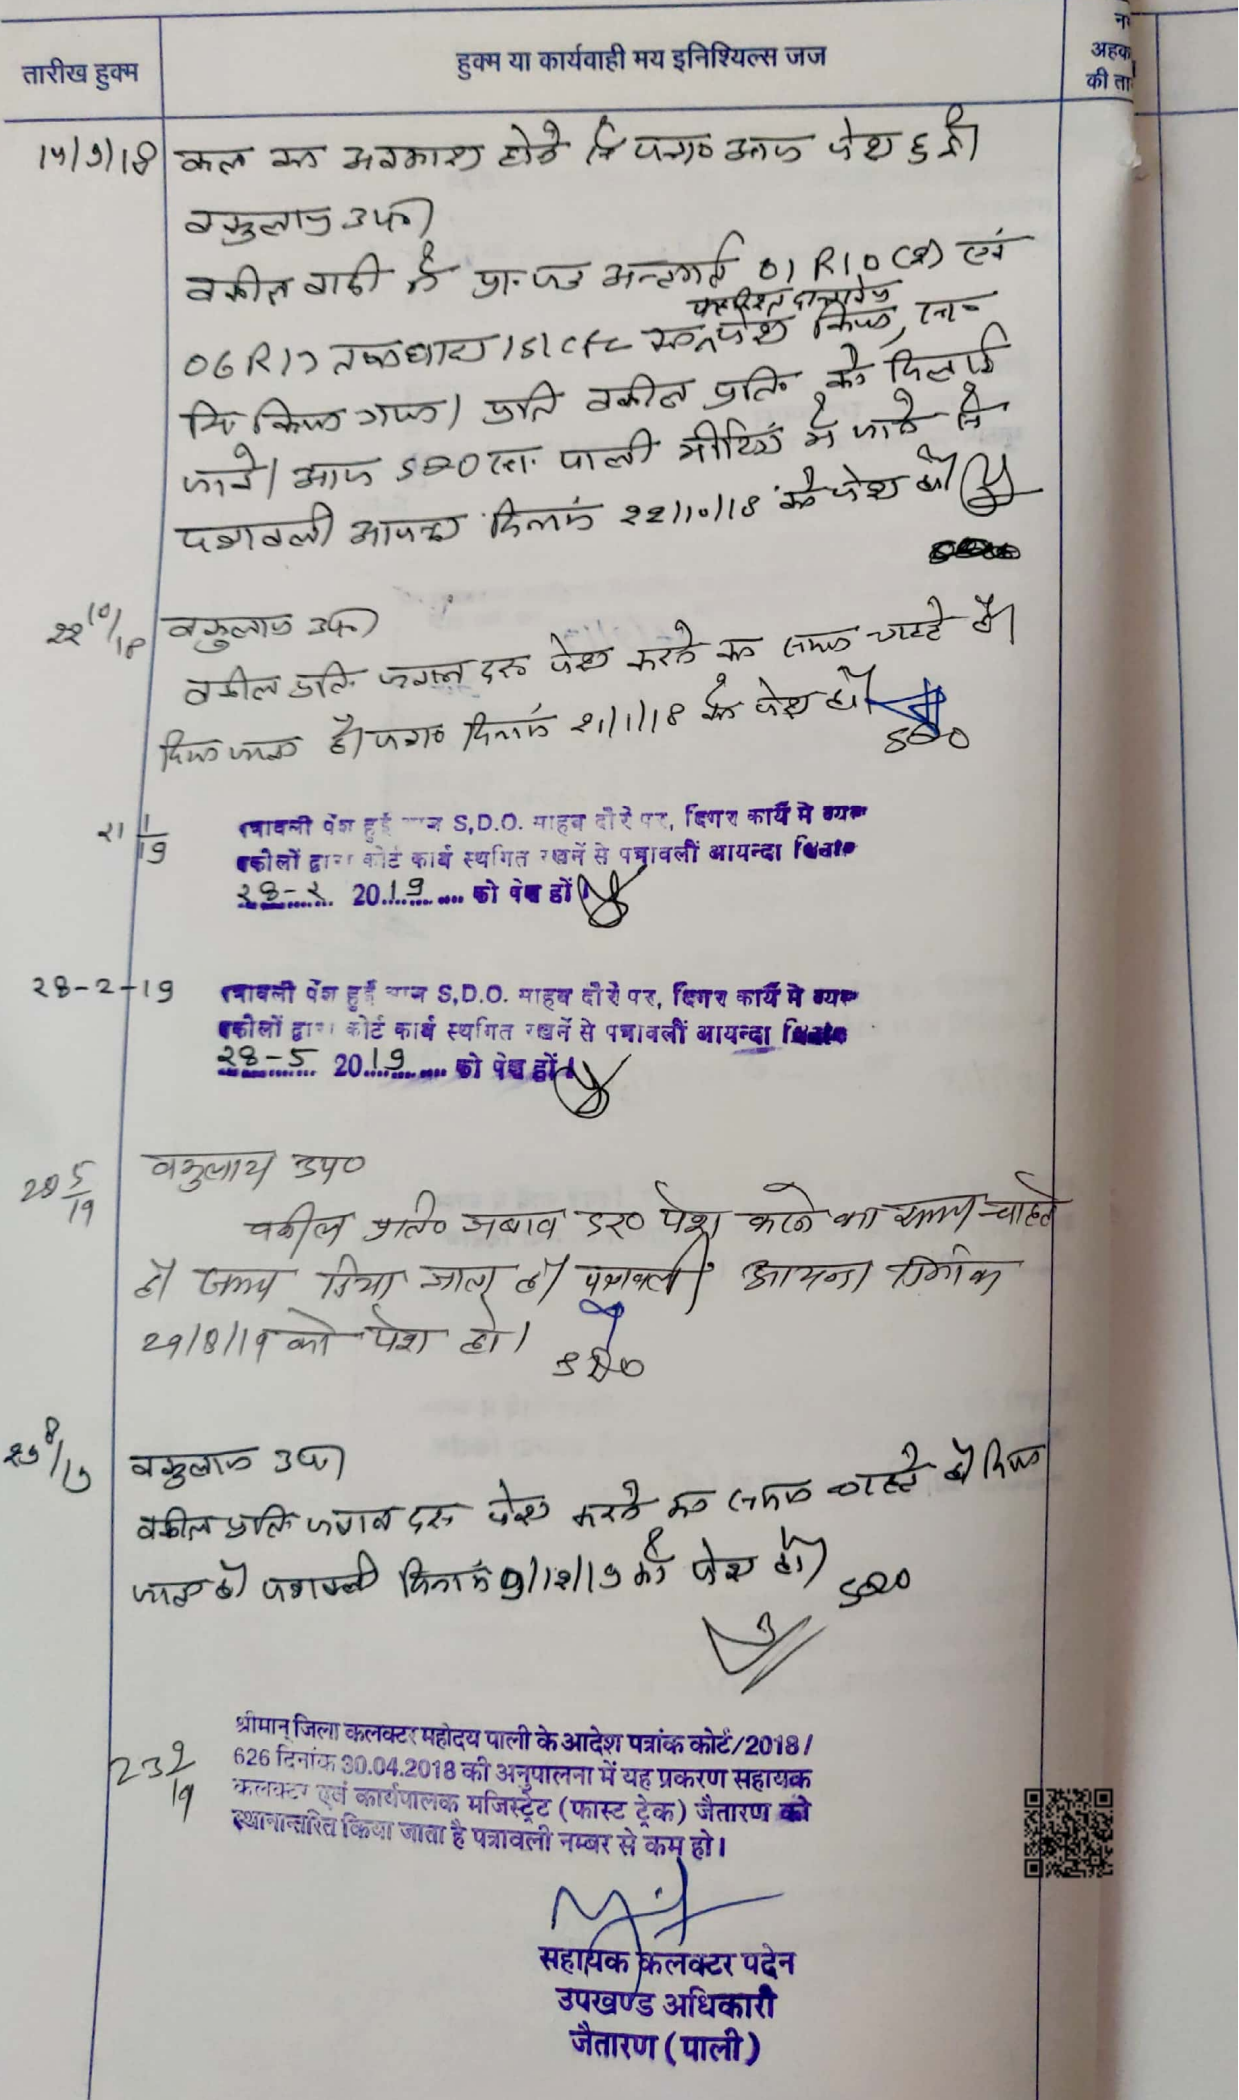 तारीख हुक्म
हुक्म या कार्यवाही मय इनिश्यिल्स जज
अहक
की ता
कल का अवकाश होने से पत्रा० आज पेश हुई।
वकुलाय उप०
वकील वादी ने प्रा. पत्र अन्तर्गत 01 R10 (2) एवं
06 R17 तथा धारा 151 CPC पेश किया,
किया गया। प्रति वकील प्रति० को दिलाई
जावे। आज SDO सा. पाली मीटिंग में जाने से
पत्रावली आयन्दा दिनांक 22/10/18 को पेश हो।
22 10/18
वकुलाय उप०
वकील प्रति० जवाब पेश करने का समय चाहते है।
दिया जाता है। पत्रा० दिनांक 21/1/18 को पेश हो।
SDO
21 1/19
पत्रावली पेश हुई S,D.O. साहब दौरे पर, दिगर कार्य मे व्यस्त
वकीलों द्वारा कोर्ट कार्य स्थगित रखनें से पत्रावलीं आयन्दा दिनांक
28-2 2019 को पेश हों।
28-2-19
पत्रावली पेश हुई आज S,D.O. साहब दौरे पर, दिगर कार्य मे व्यस्त
वकीलों द्वारा कोर्ट कार्य स्थगित रखनें से पत्रावलीं आयन्दा दिनांक
28-5 2019 को पेश हों।
28 5/19
वकुलाय उप०
वकील प्रति० जबाव पेश करने का समय चाहते
है। समय दिया जाता है। पत्रावली आयन्दा दिनांक
29/8/19 को पेश हो।
SDO
29 8/19
वकुलाय उप०
वकील प्रति० जवाब पेश करने का समय चाहते है। दिया
जाता है। पत्रावली दिनांक 9/12/19 को पेश हो।
SDO
23 9/19
श्रीमान् जिला कलक्टर महोदय पाली के आदेश पत्रांक कोर्ट/2018/
626 दिनांक 30.04.2018 की अनुपालना में यह प्रकरण सहायक
कलक्टर एवं कार्यपालक मजिस्ट्रेट (फास्ट ट्रेक) जैतारण को
स्थानान्तरित किया जाता है पत्रावली नम्बर से कम हो।
सहायक कलक्टर पदेन
उपखण्ड अधिकारी
जैतारण (पाली)